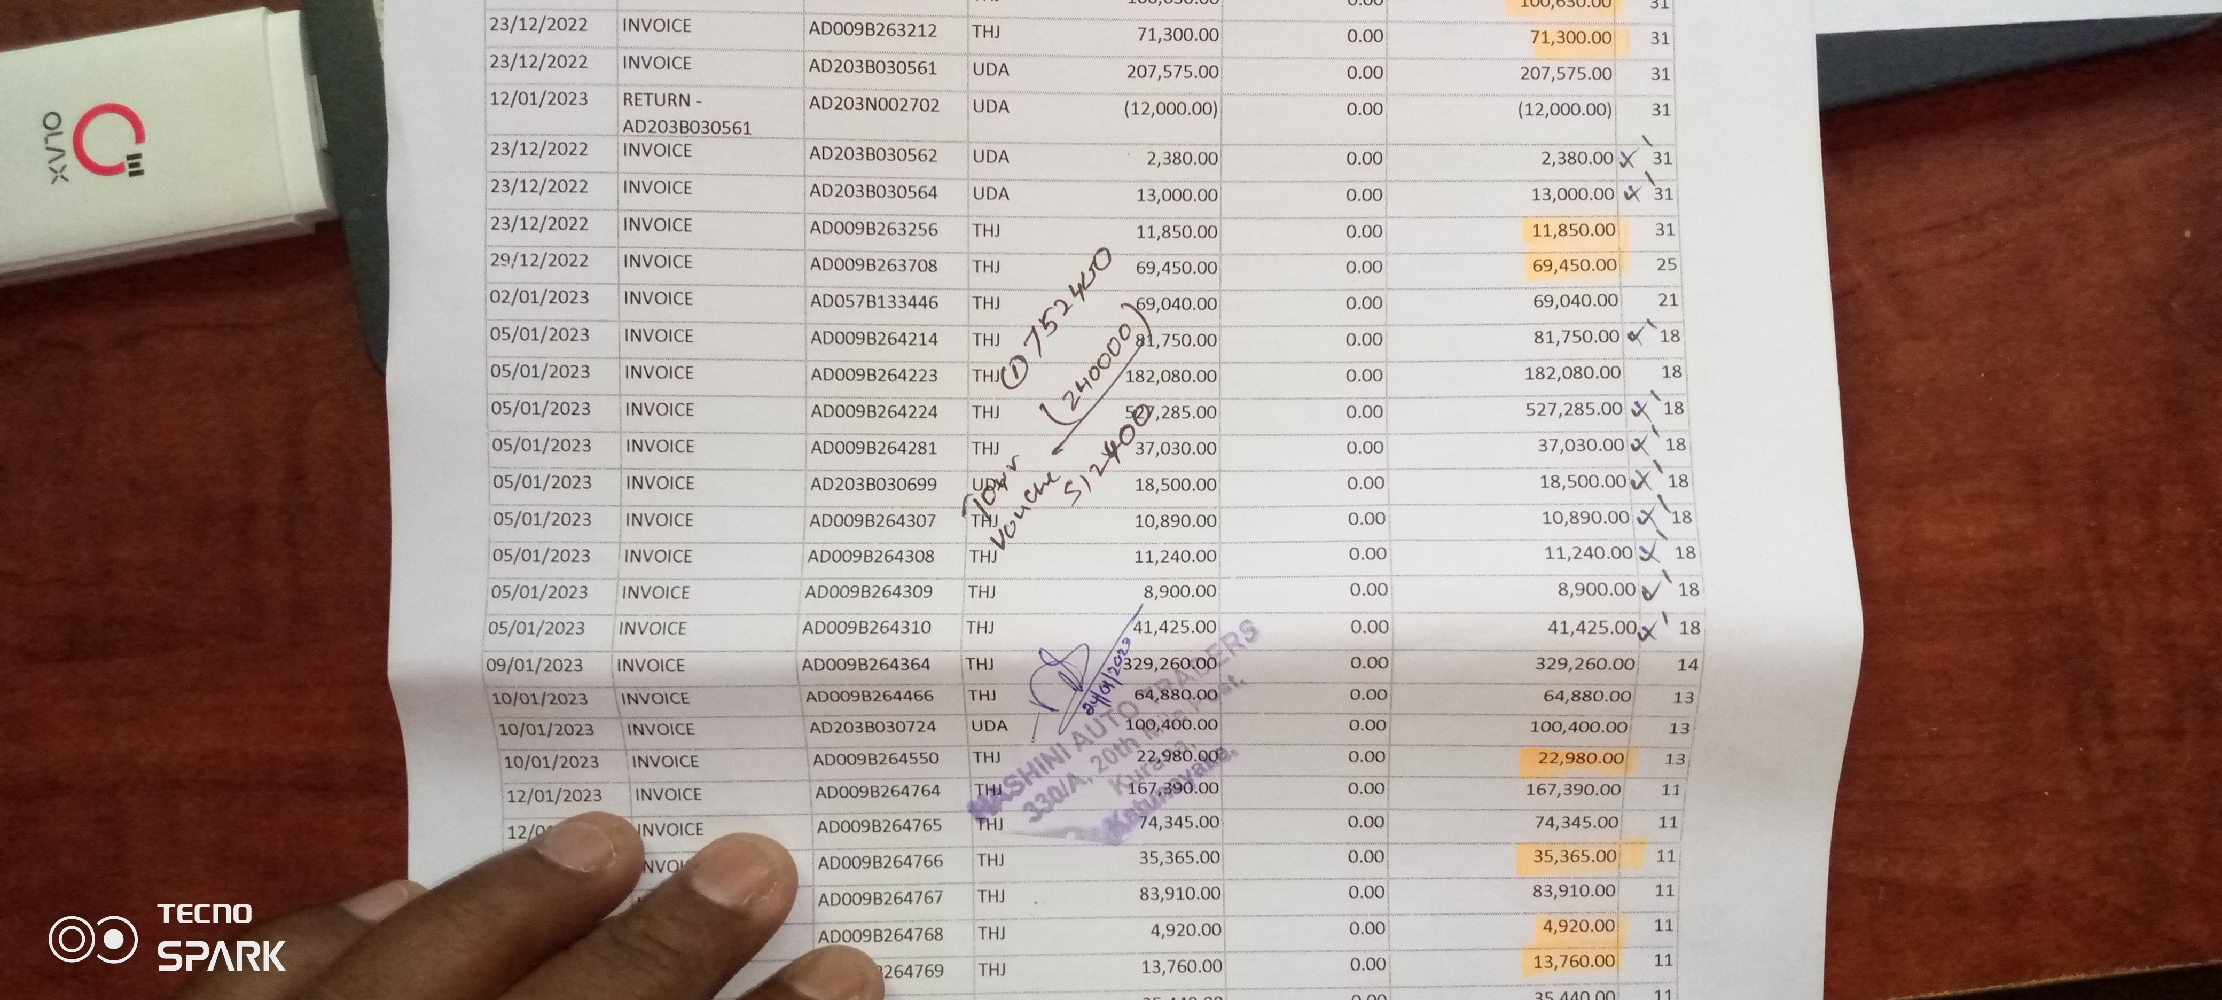 100,630.00 31
23/12/2022 INVOICE AD009B263212 THJ 71,300.00 0.00 71,300.00 31
23/12/2022 INVOICE AD203B030561 UDA 207,575.00 0.00 207,575.00 31
12/01/2023 RETURN - AD203N002702 UDA (12,000.00) 0.00 (12,000.00) 31
AD203B030561
23/12/2022 INVOICE AD203B030562 UDA 2,380.00 0.00 2,380.00 31
23/12/2022 INVOICE AD203B030564 UDA 13,000.00 0.00 13,000.00 31
23/12/2022 INVOICE AD009B263256 THJ 11,850.00 0.00 11,850.00 31
29/12/2022 INVOICE AD009B263708 THJ 69,450.00 0.00 69,450.00 25
02/01/2023 INVOICE AD057B133446 THJ 69,040.00 0.00 69,040.00 21
05/01/2023 INVOICE AD009B264214 THJ 81,750.00 0.00 81,750.00 18
05/01/2023 INVOICE AD009B264223 THJ 182,080.00 0.00 182,080.00 18
05/01/2023 INVOICE AD009B264224 THJ 527,285.00 0.00 527,285.00 18
05/01/2023 INVOICE AD009B264281 THJ 37,030.00 0.00 37,030.00 18
05/01/2023 INVOICE AD203B030699 UDA 18,500.00 0.00 18,500.00 18
05/01/2023 INVOICE AD009B264307 THJ 10,890.00 0.00 10,890.00 18
05/01/2023 INVOICE AD009B264308 THJ 11,240.00 0.00 11,240.00 18
05/01/2023 INVOICE AD009B264309 THJ 8,900.00 0.00 8,900.00 18
05/01/2023 INVOICE AD009B264310 THJ 41,425.00 0.00 41,425.00 18
09/01/2023 INVOICE AD009B264364 THJ 329,260.00 0.00 329,260.00 14
10/01/2023 INVOICE AD009B264466 THJ 64,880.00 0.00 64,880.00 13
10/01/2023 INVOICE AD203B030724 UDA 100,400.00 0.00 100,400.00 13
10/01/2023 INVOICE AD009B264550 THJ 22,980.00 0.00 22,980.00 13
12/01/2023 INVOICE AD009B264764 THJ 167,390.00 0.00 167,390.00 11
12/0 INVOICE AD009B264765 THJ 74,345.00 0.00 74,345.00 11
AD009B264766 THJ 35,365.00 0.00 35,365.00 11
AD009B264767 THJ 83,910.00 0.00 83,910.00 11
AD009B264768 THJ 4,920.00 0.00 4,920.00 11
264769 THJ 13,760.00 0.00 13,760.00 11
35,440.00 0.00 35,440.00 11
① 752400
(240000)
512400
Tour
24/01/2023
AUTO TRADERS
330/A, 20th Mile Post,
Kurana,
Katunayaka.
OLAX
TECNO
SPARK